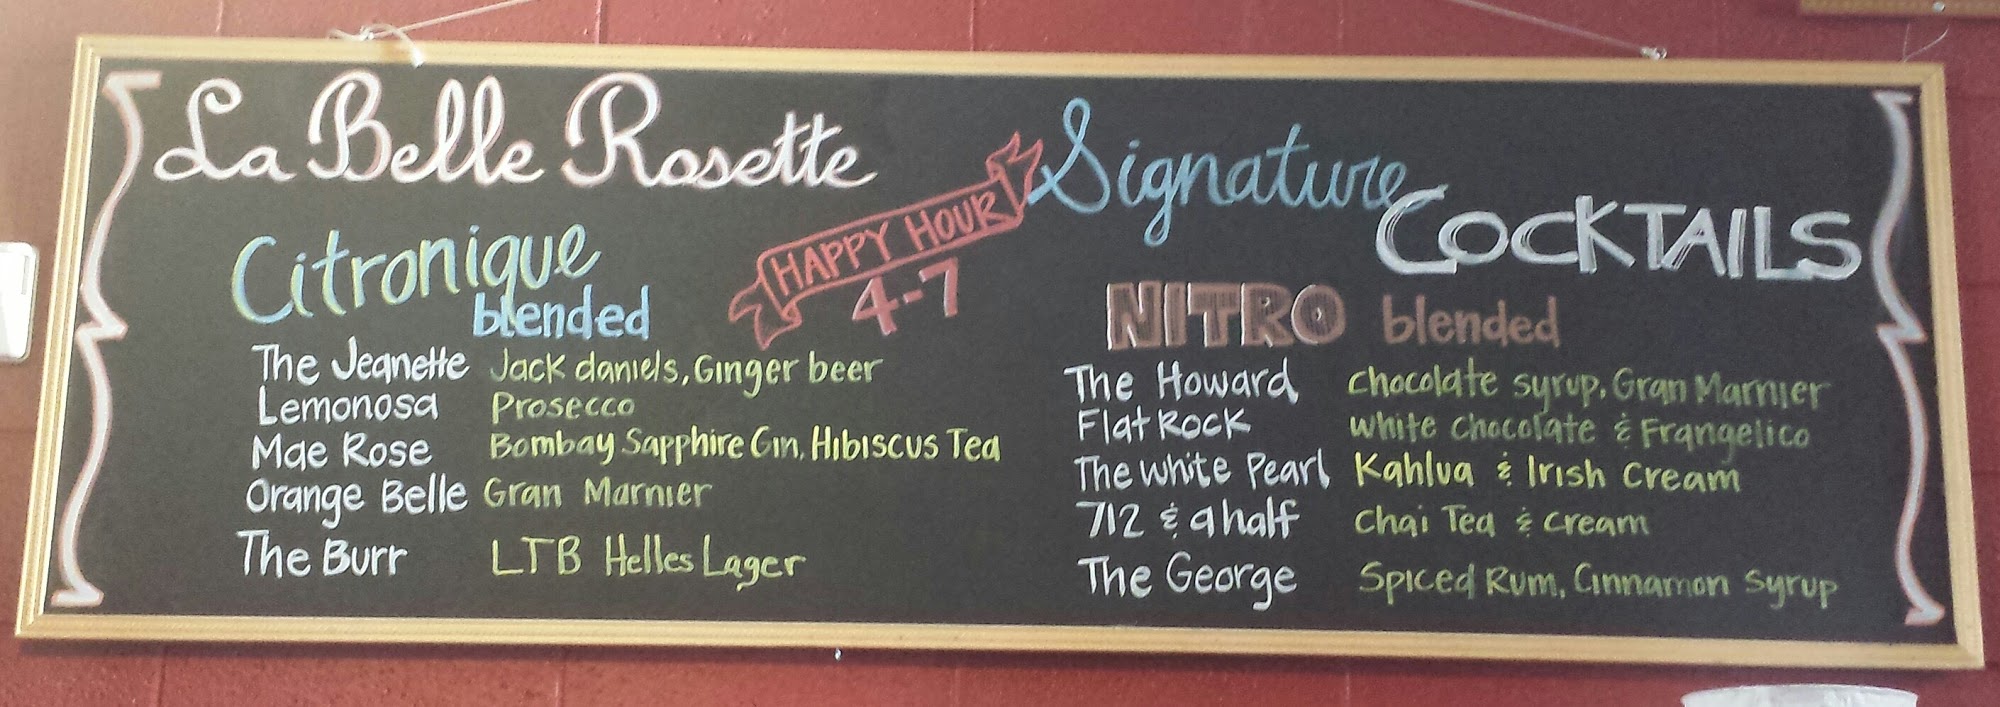 La Belle Rosette
HAPPY HOUR
4-7
Signature
COCKTAILS
Citronique
blended
The Jeanette Jack daniels, Ginger beer
Lemonosa Prosecco
Mae Rose Bombay Sapphire Gin, Hibiscus Tea
Orange Belle Gran Marnier
The Burr LTB Helles Lager
NITRO blended
The Howard Chocolate syrup, Gran Marnier
Flat Rock White chocolate & Frangelico
The White Pearl Kahlua & Irish Cream
712 & a half Chai Tea & Cream
The George Spiced Rum, Cinnamon Syrup